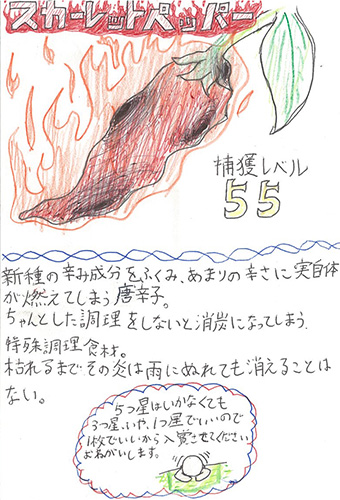 スカーレットペッパー
捕獲レベル
55
新種の辛み成分をふくみ、あまりの辛さに実自体
が燃えてしまう唐辛子。
ちゃんとした調理をしないと消炭になってしまう
特殊調理食材。
枯れるまでその炎は雨にぬれても消えることは
ない。
5つ星はいかなくても
3つ星、いや、1つ星でいいので
1枚でいいから入賞させてください
おねがいします。